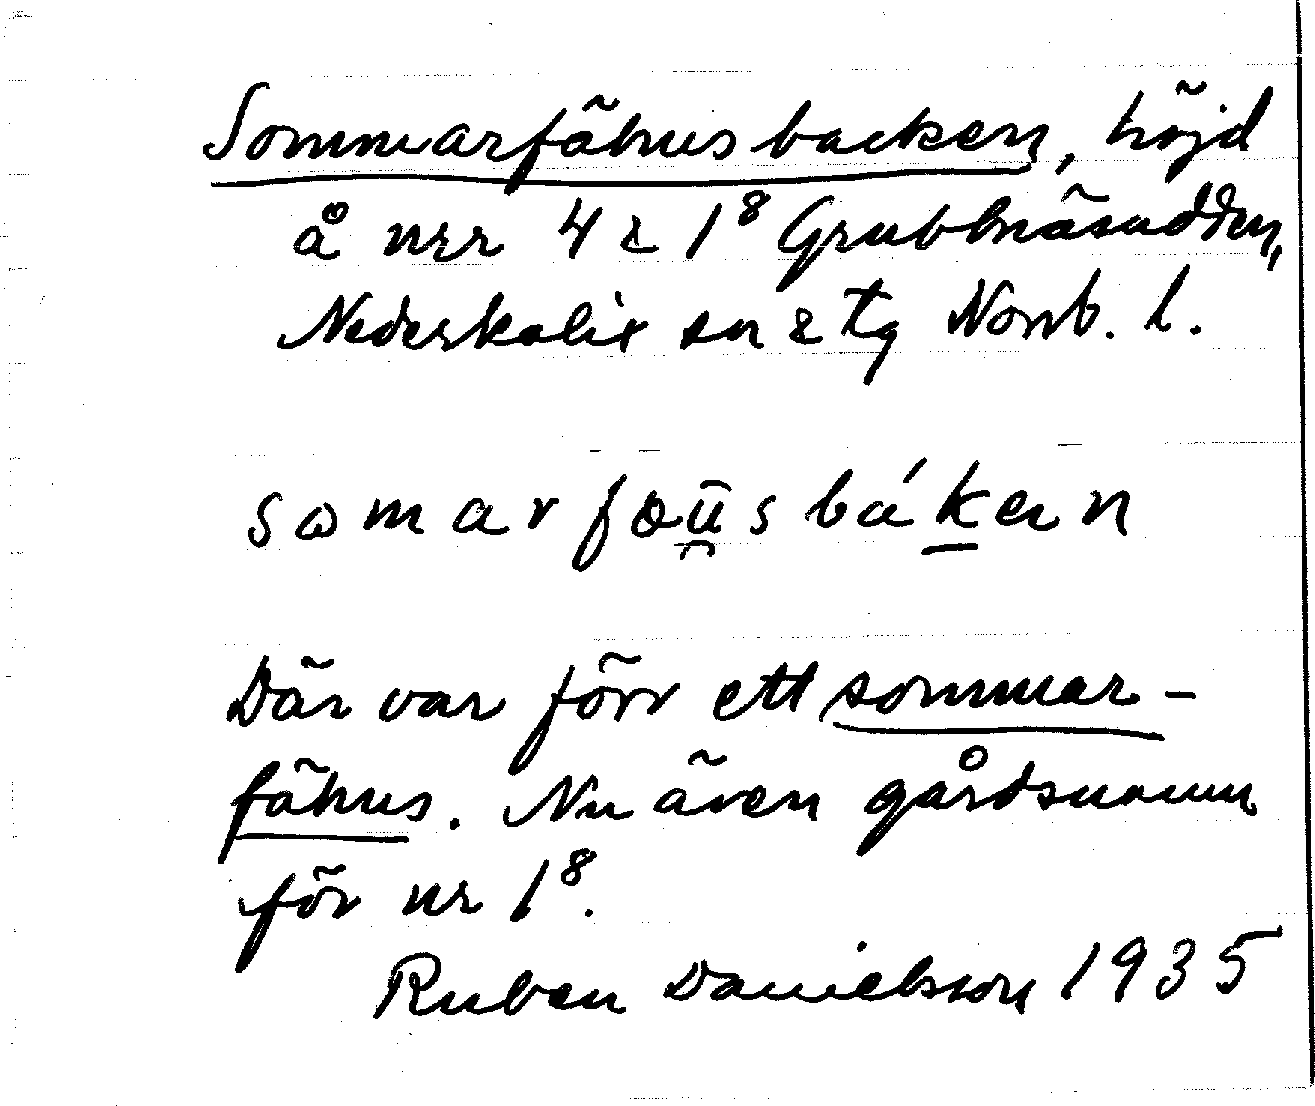 Sommarfähusbacken, höjd
å nrr 4 & 1⁸ Grubbnäsudden,
Nederkalix sn & tg Norrb. l.
Där var förr ett sommar-
fähus. Nu även gårdsnamn
för nr 1⁸.
Ruben Danielsson 1935